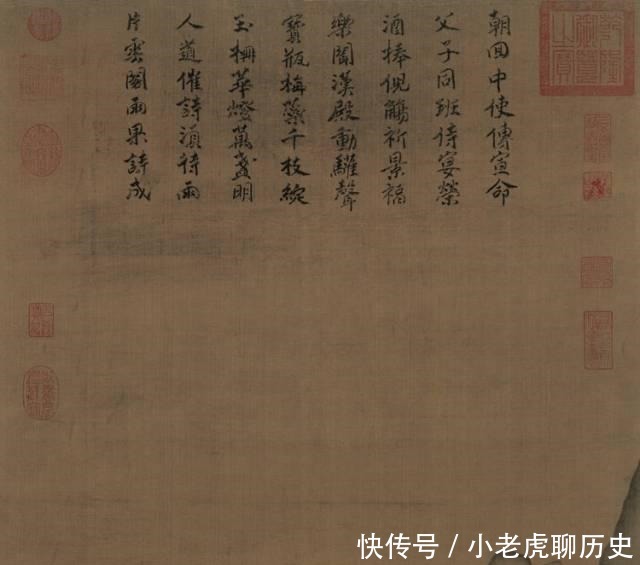 朝回中使傳宣命
父子同班侍宴榮
酒捧倪觴祈景福
樂聞漢殿動驩聲
寶瓶梅蘂千枝綻
玉柵華燈萬盞明
人道催詩須待雨
片雲閣雨果詩成
快传号 / 小老虎聊历史